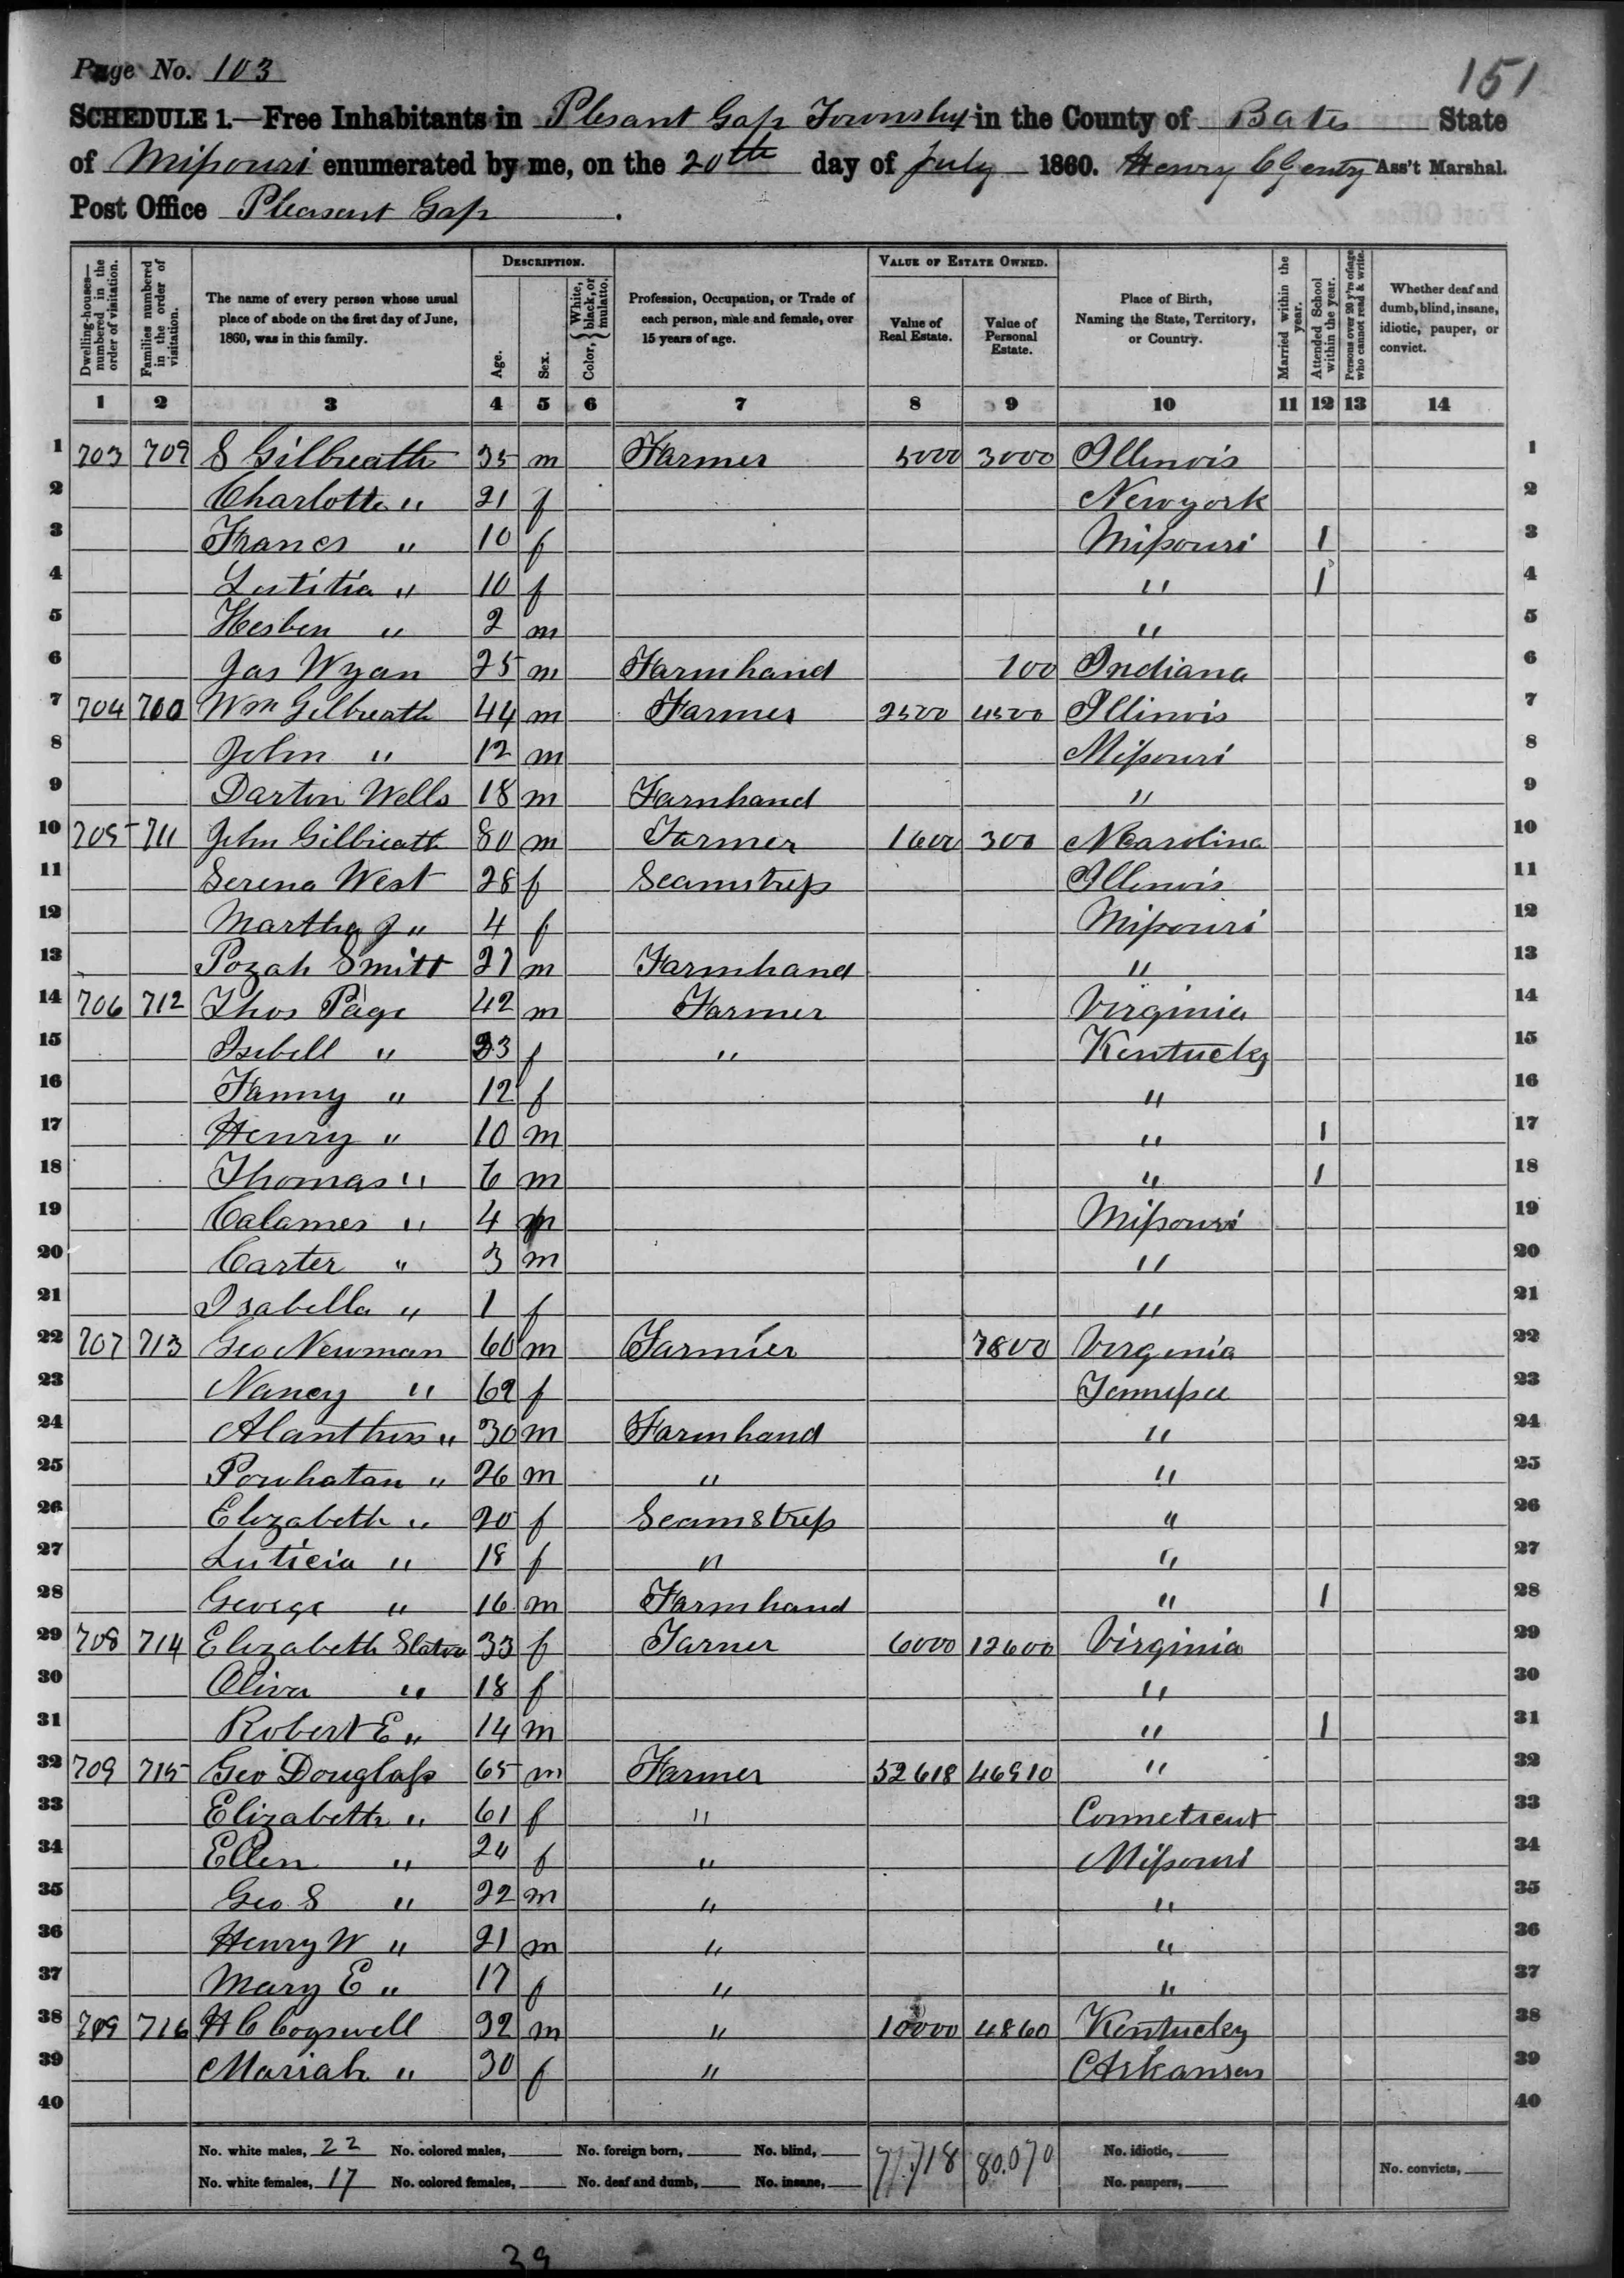 Page No. 103
151
SCHEDULE 1.—Free Inhabitants in Plesant Gap Township in the County of Bates State
of Missouri enumerated by me, on the 20th day of July 1860. Henry C Gentry Ass't Marshal.
Post Office Pleasant Gap.
Dwelling-houses—numbered in the order of visitation.
Families numbered in the order of visitation.
The name of every person whose usual place of abode on the first day of June, 1860, was in this family.
DESCRIPTION.
Age.
Sex.
Color, { White, black, or mulatto.
Profession, Occupation, or Trade of each person, male and female, over 15 years of age.
VALUE OF ESTATE OWNED.
Value of Real Estate.
Value of Personal Estate.
Place of Birth, Naming the State, Territory, or Country.
Married within the year.
Attended School within the year.
Persons over 20 y'rs of age who cannot read & write.
Whether deaf and dumb, blind, insane, idiotic, pauper, or convict.
1 2 3 4 5 6 7 8 9 10 11 12 13 14
1 703 709 S Gilbreath 35 m Farmer 5000 3000 Illinois 1
2 Charlotte " 21 f Newyork 2
3 Frances " 10 f Missouri 1 3
4 Lutitia " 10 f " 1 4
5 Hesben " 2 m " 5
6 Jas Wyan 25 m Farmhand 100 Indiana 6
7 704 710 Wm Gilbreath 44 m Farmer 2500 4500 Illinois 7
8 John " 12 m Missouri 8
9 Darton Wells 18 m Farmhand " 9
10 705 711 John Gilbreath 80 m Farmer 1600 300 N Carolina 10
11 Serena West 28 f Seamstress Illinois 11
12 Martha J " 4 f Missouri 12
13 Pozah Smitt 27 m Farmhand " 13
14 706 712 Thos Page 42 m Farmer Virginia 14
15 Isibell " 33 f " Kentucky 15
16 Fanny " 12 f " 16
17 Henry " 10 m " 1 17
18 Thomas " 6 m " 1 18
19 Calames " 4 m Missouri 19
20 Carter " 3 m " 20
21 Isabella " 1 f " 21
22 707 713 Geo Newman 60 m Farmer 7800 Virginia 22
23 Nancy " 62 f Tennessee 23
24 Alanthus " 30 m Farmhand " 24
25 Powhatan " 26 m " " 25
26 Elizabeth " 20 f Seamstress " 26
27 Luticia " 18 f " " 27
28 George " 16 m Farmhand " 1 28
29 708 714 Elizabeth Slaton 33 f Farmer 6000 12600 Virginia 29
30 Oliva " 18 f " 30
31 Robert E " 14 m " 1 31
32 709 715 Geo Douglass 65 m Farmer 52618 46910 " 32
33 Elizabeth " 61 f " Conneticut 33
34 Ellen " 24 f " Missouri 34
35 Geo S " 22 m " " 35
36 Henry W " 21 m " " 36
37 Mary E " 17 f " " 37
38 709 716 H C Cogswell 32 m " 10000 4860 Kentucky 38
39 Mariah " 30 f " Arkansas 39
40 40
No. white males, 22 No. colored males, No. foreign born, No. blind, 77.718 80.070 No. idiotic,
No. white females, 17 No. colored females, No. deaf and dumb, No. insane, No. paupers, No. convicts,
39